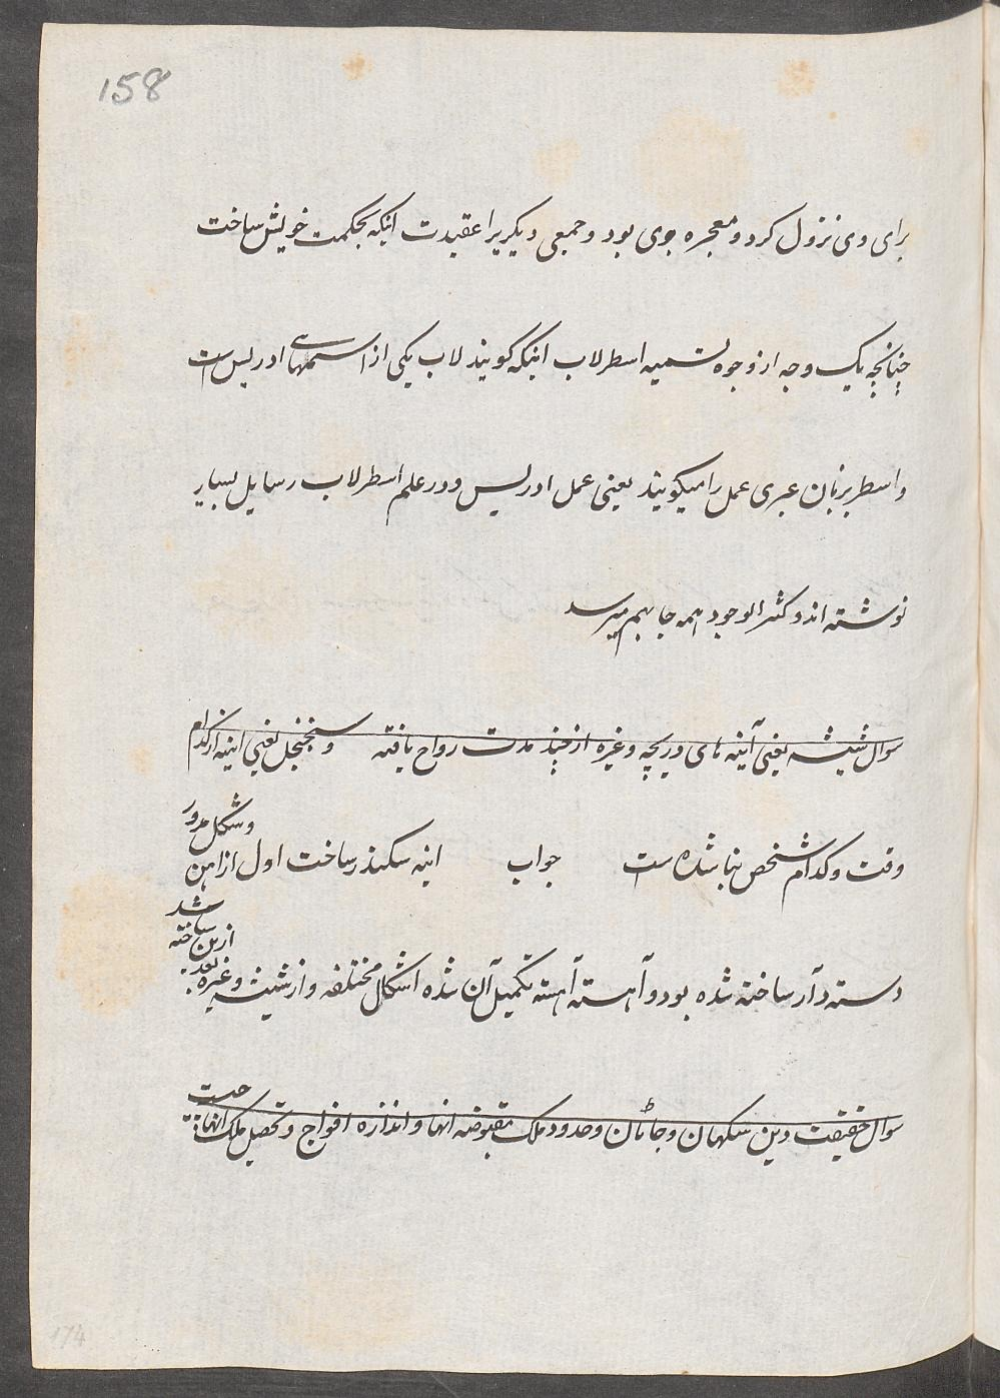 158
برای وی نزول کرد و معجزه وی بود و جمعی دیگر را عقیدت اینکه بحکمت خویش ساخت
چنانچه یک وجه از وجوه تسمیه اسطرلاب اینکه گویند لاب یکی از اسمهای ادریس است
و اسطر بزبان عبری عمل را میگویند یعنی عمل ادریس و در علم اسطرلاب رسایل بسیار
نوشته اند و کثیر الوجود همه جا بهم میرسد
سوال شیشه یعنی آینه های دریچه و غیره از چند مدت رواج یافته و سجنجل یعنی اینه از کدام
وقت و کدام شخص بنا شده است جواب اینه سکندر ساخت اول از اهن و شکل مدور
دسته دار ساخته شده بود و آهسته آهسته تکمیل آن شده اشکال مختلفه و از شیشه و غیره بعد ازین ساخته شد
سوال حقیقت دین سکهان و جاتان و حدود ملک مقبوضه انها و اندازه افواج و تحصیل ملک انها چیست
174